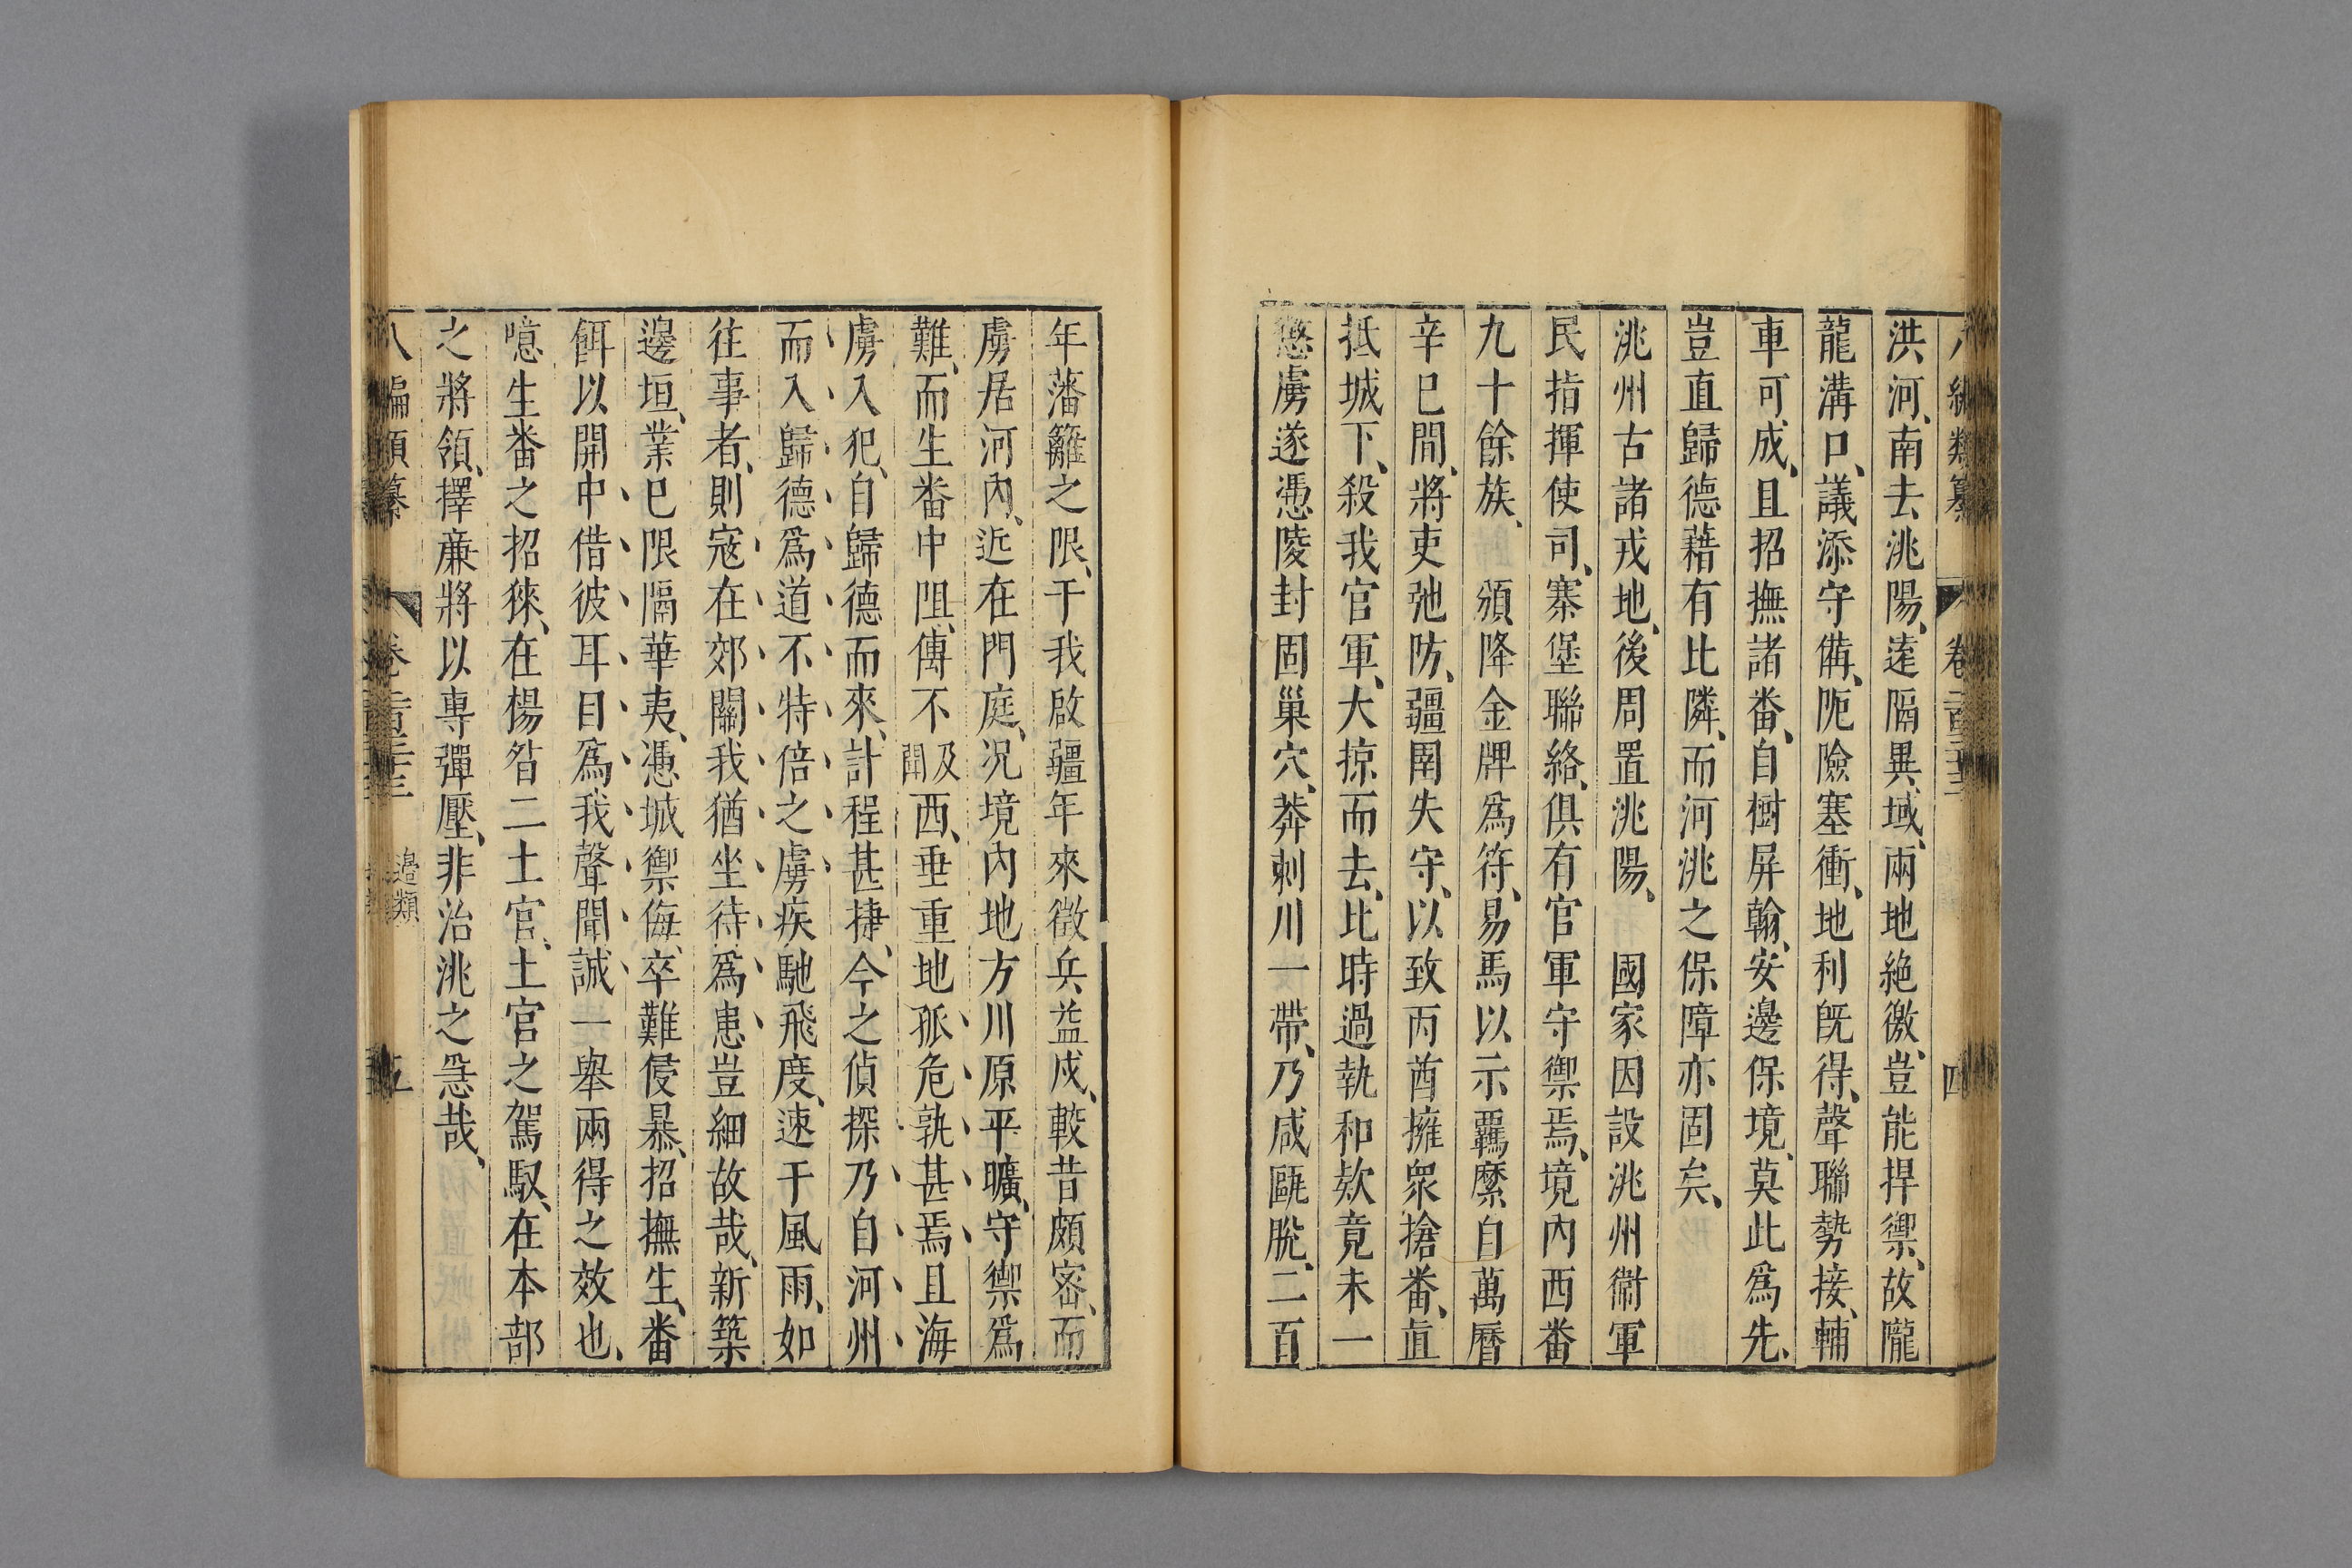 八編類纂 卷二百三十三 四
洪河、南去洮陽、遠隔異域、兩地絶徼、豈能捍禦、故隴
龍溝口、議添守備、阨險塞衝、地利旣得、聲聯勢接、輔
車可成、且招撫諸番、自樹屏翰、安邊保境、莫此爲先、
豈直歸德藉有比隣、而河洮之保障亦固矣、
洮州古諸戎地、後周置洮陽、 國家因設洮州衛軍
民指揮使司、寨堡聯絡、俱有官軍守禦焉、境內西番
九十餘族、 頒降金牌爲符、易馬以示羈縻自萬曆
辛巳間、將吏弛防、疆圉失守、以致丙酋擁衆搶番、直
抵城下、殺我官軍、大掠而去、比時過執和欵竟未一
懲虜遂憑陵封固巢穴、莽剌川一帶、乃咸甌脫、二百
年藩籬之限、于我啟疆年來徵兵益戍、較昔頗密、而
虜居河內、近在門庭、况境內地方川原平曠、守禦爲
難、而生番中阻、傳不及聞西、垂重地孤危孰甚焉且海
虜入犯、自歸德而來、計程甚捷、今之偵探乃自河州
而入歸德爲道不特倍之虜疾馳飛度、速于風雨、如
往事者、則寇在郊關我猶坐待爲患豈細故哉、新築
邊垣、業已限隔華夷、憑城禦侮、卒難侵暴、招撫生、番
餌以開中借彼耳目爲我聲聞誠一舉兩得之效也、
噫生番之招徠、在楊昝二土官、土官之駕馭、在本部
之將領、擇亷將以專彈壓、非治洮之急哉、
八編類纂 卷二百三十三 邊類 五